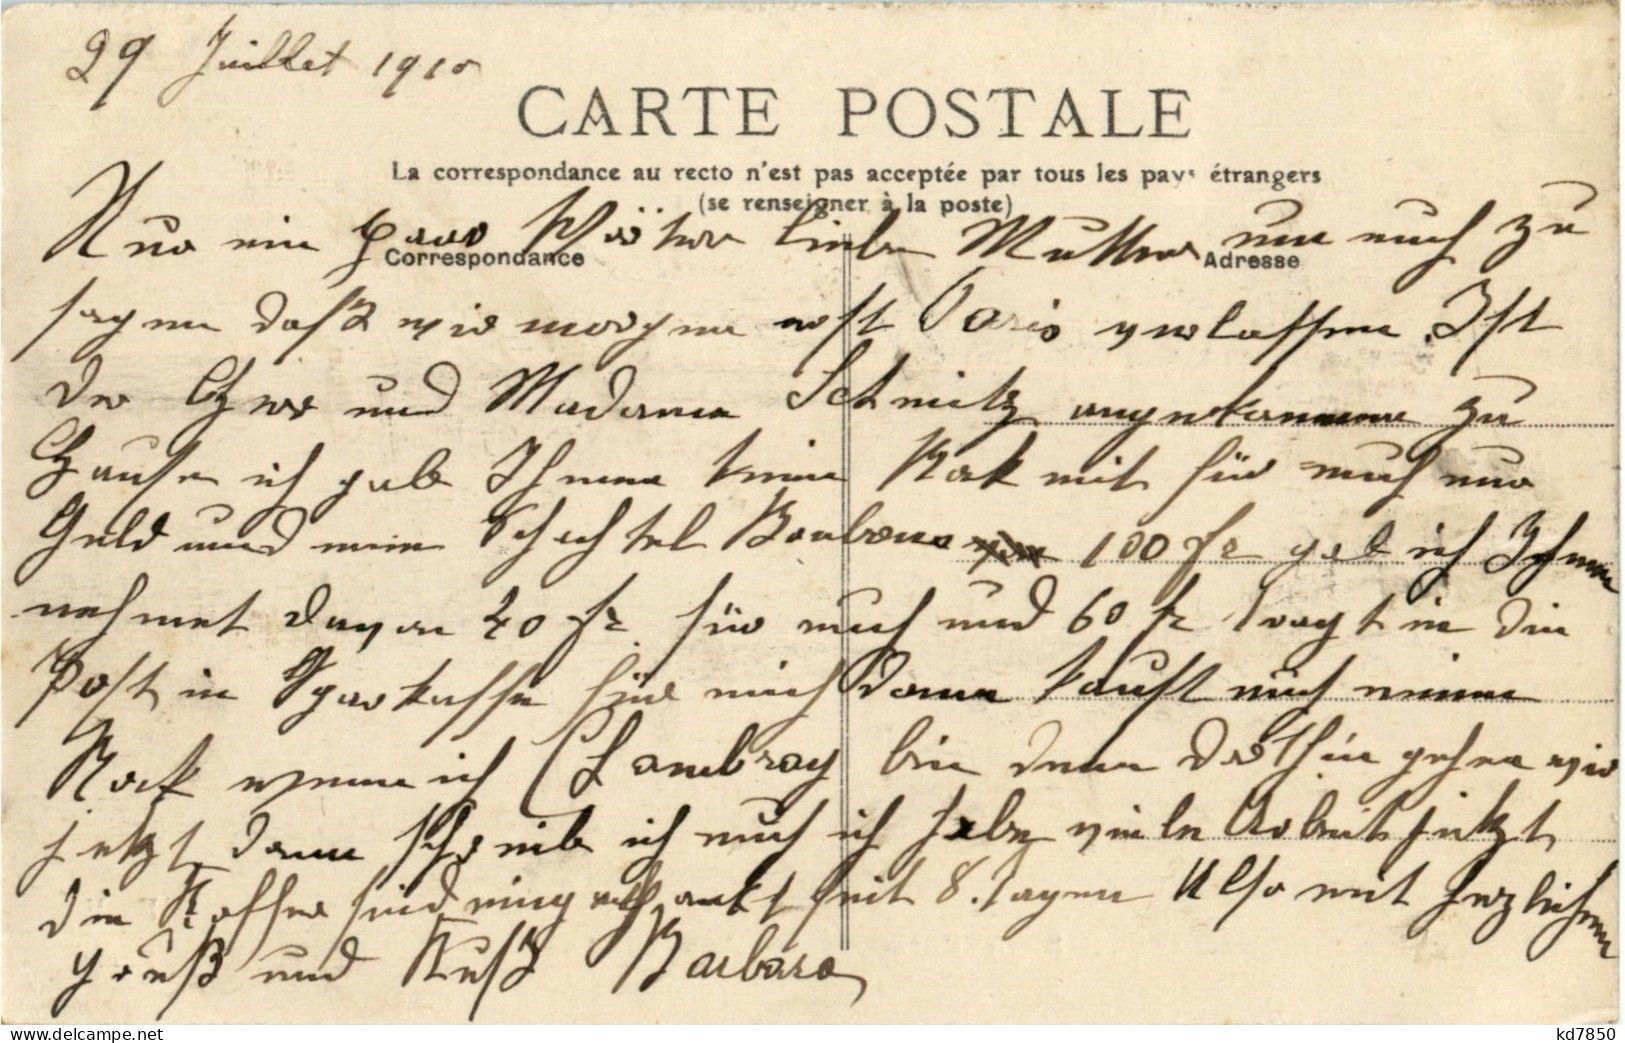 29 Juillet 1910
CARTE POSTALE
La correspondance au recto n'est pas acceptée par tous les pays étrangers
(se renseigner à la poste)
Correspondance
Adresse
Nur ein paar Wörter liebe Mutter um euch zu
sagen daß wir morgen erst Paris verlassen. Ist
der Herr und Madame Schmitz angekommen zu
Hause ich gab Ihnen kein Rock mit für euch nur
Geld und eine Schachtel Bonbons 100 fr gab ich Ihnen
nehmet davon 40 fr für euch und 60 fr tragt in die
Post in Sparkasse für mich dann kauft euch einen
Rock wenn ich Chambray bin denn dorthin gehen wir
jetzt dann schreibe ich euch ich habe viele Arbeit jetzt
die Koffer sind eingepackt seit 8. Tagen Also mit herzlichem
Gruß und Kuß Barbara
kd7850